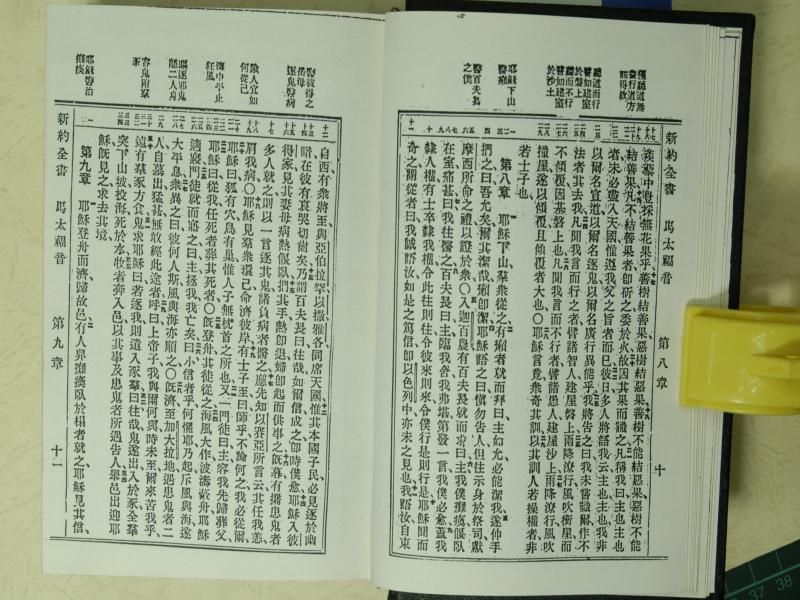 新約全書 馬太福音 第八章 十
僅聽道無
聽道而行
譬如建室
於磐上
聽而不行
譬如建室
於沙土
耶穌下山
醫癩
醫百夫長
之僕
蒺藜中豈採無花果乎善樹結善果惡樹結惡果善樹不能結惡果惡樹不能
結善果凡不結善果者卽斫之委於火故因其果而識之凡稱我曰主也主也
者未必盡入天國惟遵我父之旨者而已彼日多人將語我云主也主也我非
以爾名宣道以爾名逐鬼以爾名廣行異能乎我將告之曰我未嘗識爾作不
法者其去我凡聞我言而行之者譬諸智人建屋磐上雨降潦行風吹衝屋而
不傾覆因基磐上也凡聞我言而不行者譬諸愚人建屋沙上雨降潦行風吹
撞屋遂以傾覆且傾覆者大也〇耶穌言竟衆奇其訓以其訓人若操權者非
若士子也
第八章 耶穌下山羣衆從之有癩者就而拜曰主如允必能潔我遂伸手
捫之曰吾允矣爾其潔哉癩卽潔耶穌語之曰愼勿告人但往示身於祭司獻
摩西所命之禮以證於衆〇入迦百農有百夫長就而求曰主我僕癱瘓偃臥
在室痛甚曰我往醫之百夫長曰主臨我舍我弗堪第發一言我僕必愈蓋我
隸人權有士卒隸我權令此往則往令彼來則來令僕行是則行是耶穌聞而
奇之謂從者曰我誠語汝如是之篤信卽以色列中亦未之見也我語汝自東
新約全書 馬太福音 第九章 十一
醫彼得之
岳母
逐鬼醫病
人宜如
何從己
海中平止
狂風
驅逐邪鬼
關二人身
容鬼附羣
豕
耶穌醫治
癱瘓
自西有衆將至與亞伯拉罕以撒雅各同席天國惟其本國子民必見逐於幽
暗在彼有哀哭切齒矣乃謂百夫長曰往哉如爾信成之卽時僕愈耶穌入彼
得家見其妻母病熱偃臥捫其手熱卽退婦卽起而供事之旣暮有攜患鬼者
多人就之則以一言逐其鬼諸負病者醫之應先知以賽亞所言云其任我恙
肩我病〇耶穌見羣衆環己命濟彼岸有士子至曰師乎不論何之我必從爾
耶穌曰狐有穴鳥有巢惟人子無枕首之所也又一門徒曰主容我先歸葬父
耶穌曰從我任死者葬其死者〇旣登舟其徒從之海風大作波濤蔽舟耶穌
適寢門徒就而寤之曰主拯我我亡矣曰小信者乎何懼耶乃起斥風與海遂
大平息衆異之曰彼何人斯風與海亦順之〇旣濟至加大拉地遇患鬼者二
人自墓出猛甚無敢經此途者呼曰上帝子我與爾何與時未至爾來苦我乎
遠有羣豕方食鬼求耶穌曰若逐我則遣入豕羣曰往哉鬼遂出入於豕全羣
突下山坡投海死於水牧者奔入邑以其事及患鬼者所遇告人舉邑出迎耶
穌旣見之求去其境
第九章 耶穌登舟而濟歸故邑有人舁癱瘓臥於榻者就之耶穌見其信
37
38